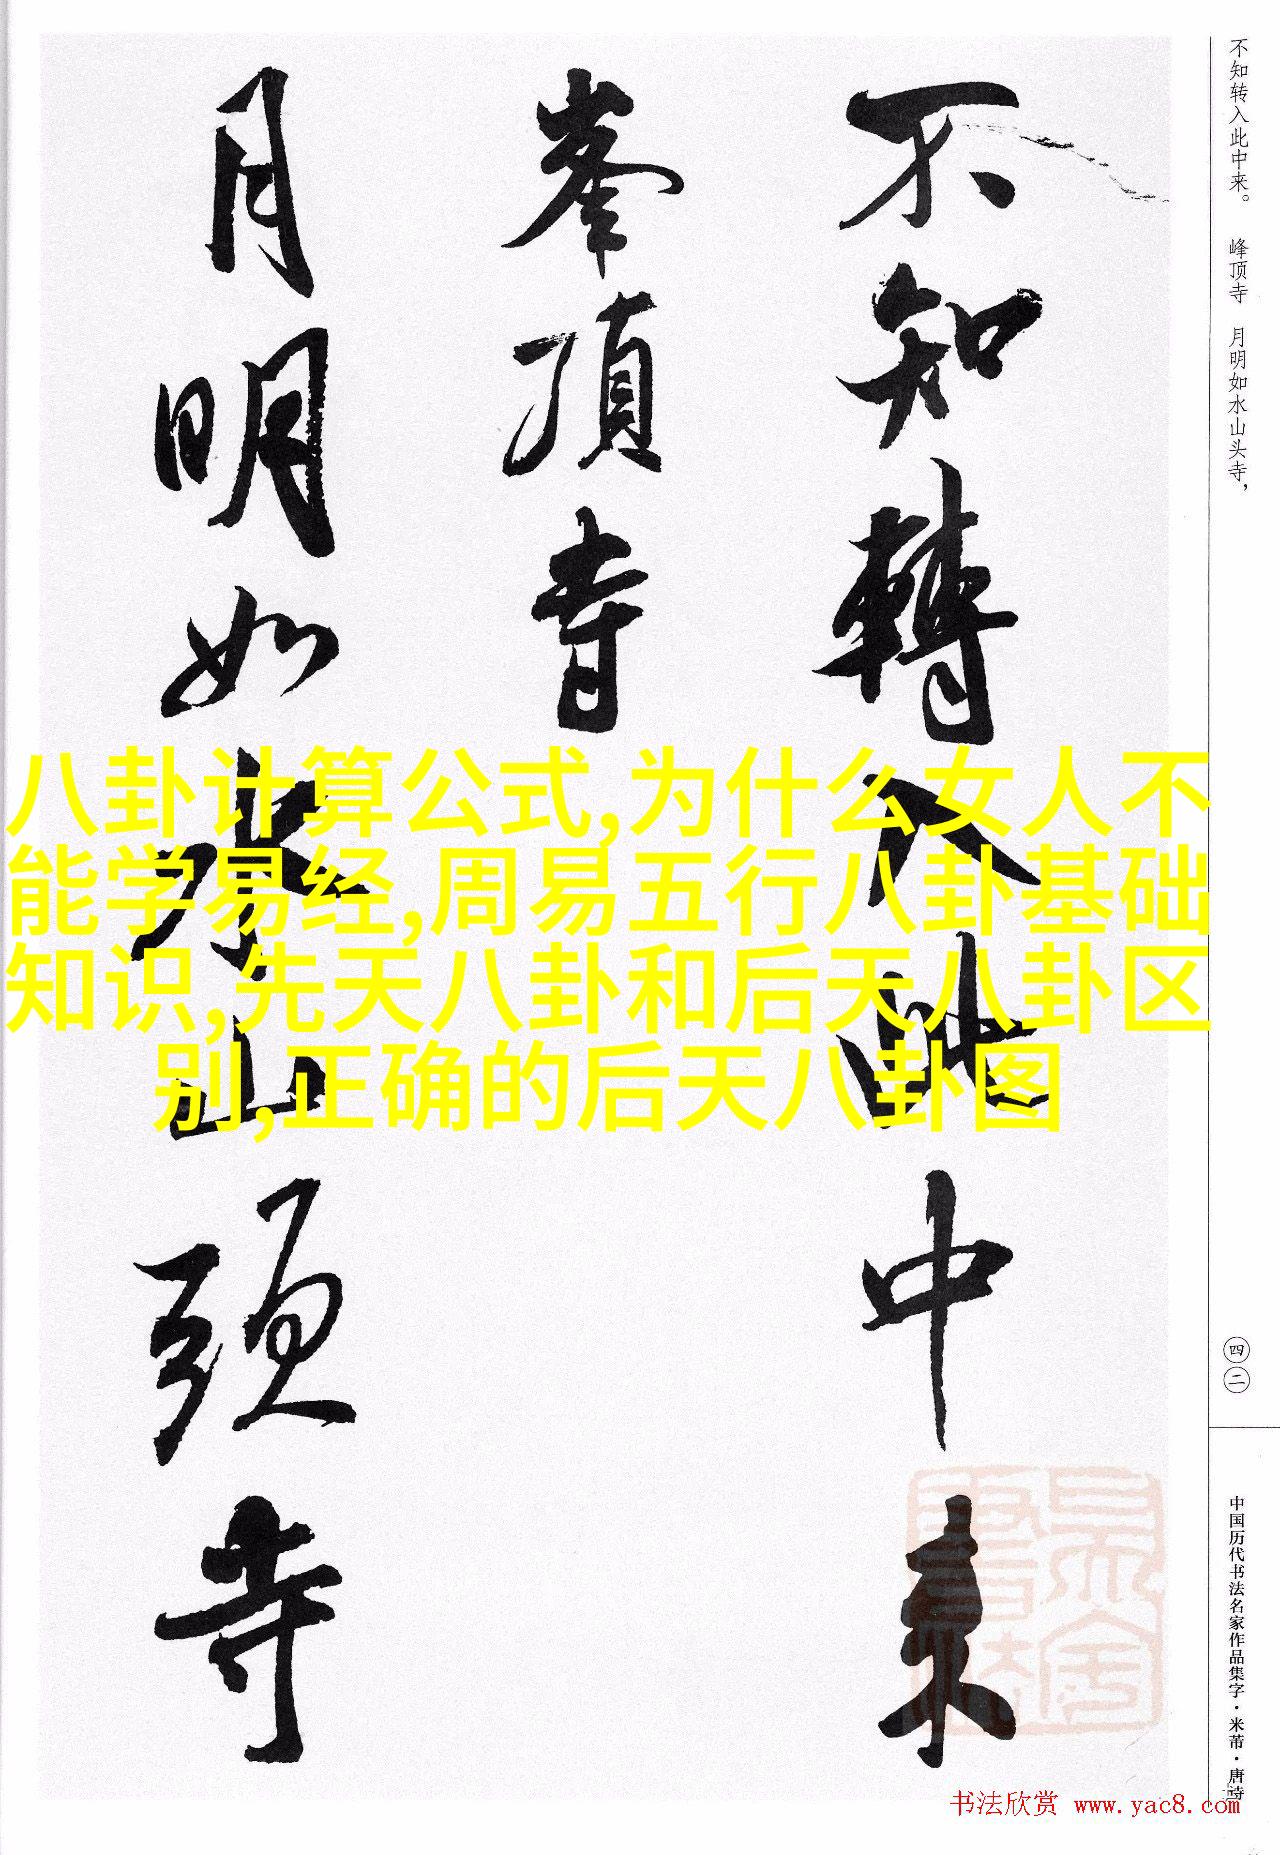 不知轉入此中来
峯頂寺
月明如水山頭寺
不知转入此中来。 峰顶寺 月明如水山头寺,
四二
中国历代书法名家作品集字·米芾·唐诗
八卦计算公式,为什么女人不
能学易经,周易五行八卦基础
知识,先天八卦和后天八卦区
别,正确的后天八卦图
书法欣赏 www.yac8.com